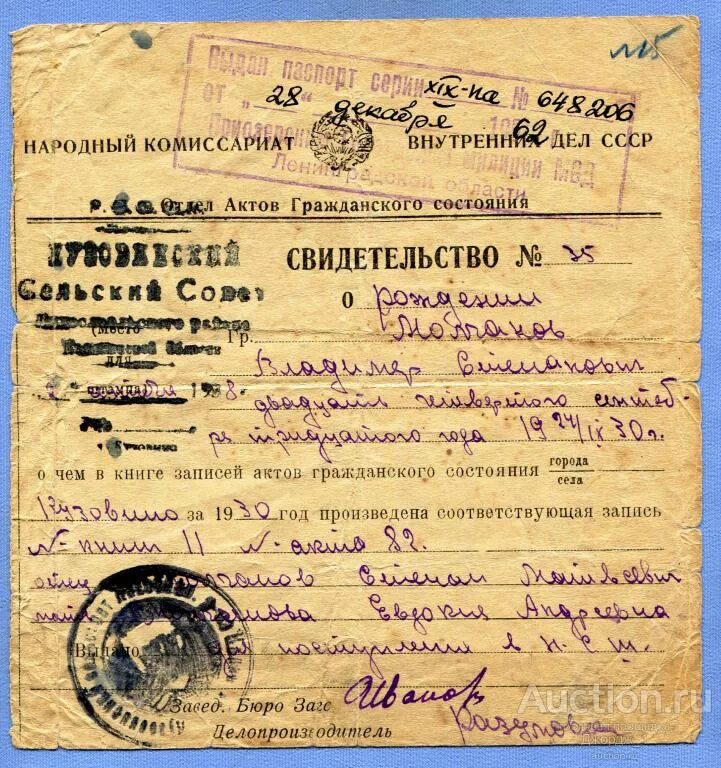 №15
Выдан паспорт серии XIX-па № 648206
от „28“ декабря 1962 г.
милиции МВД
Ленинградской области
НАРОДНЫЙ КОМИССАРИАТ ВНУТРЕННИХ ДЕЛ СССР
Отдел Актов Гражданского состояния
Сельский Совет
района
области
(Место
для
штампа)
1938
СВИДЕТЕЛЬСТВО № 35
о рождении
Гр.
Владимер Степанович
двадцать четвертого сентеб-
ре тридцатого года 1924/IX 30 г.
о чем в книге записей актов гражданского состояния города
села
Кузовино за 1930 год произведена соответствующая запись
№ книги 11 № акта 82.
отец Степан Матвеевич
мать Евдокия Андреевна
Выдано для поступления в Н.С.Ш.
Завед. Бюро Загс Иванов
Делопроизводитель
Auction.ru
auction.ru